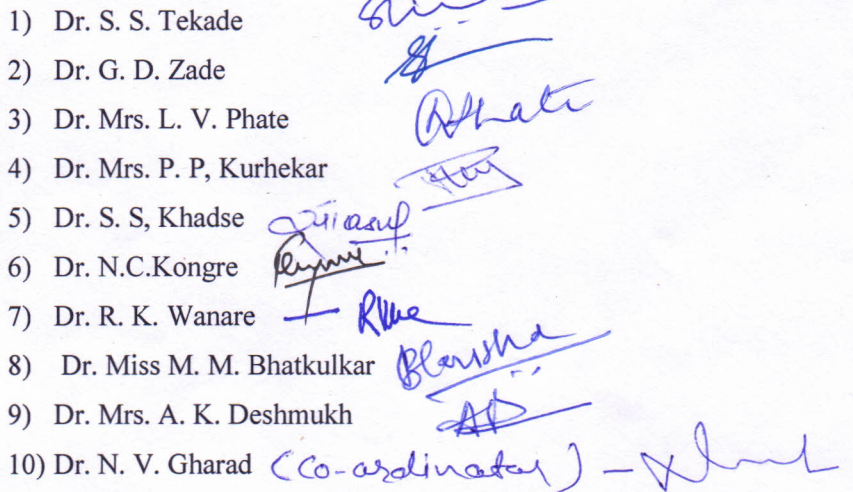 1) Dr. S. S. Tekade
2) Dr. G. D. Zade
3) Dr. Mrs. L. V. Phate
4) Dr. Mrs. P. P, Kurhekar
5) Dr. S. S, Khadse
6) Dr. N.C.Kongre
7) Dr. R. K. Wanare
8) Dr. Miss M. M. Bhatkulkar
9) Dr. Mrs. A. K. Deshmukh
10) Dr. N. V. Gharad (Co-ordinator) -